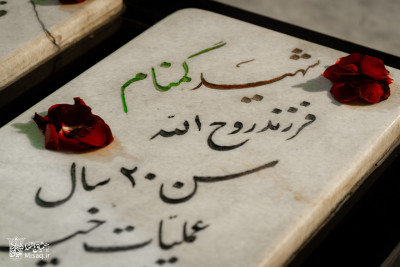 شهید گمنام
فرزند روح الله
سن ۲۰ سال
عملیات خیبر
Misaq.ir